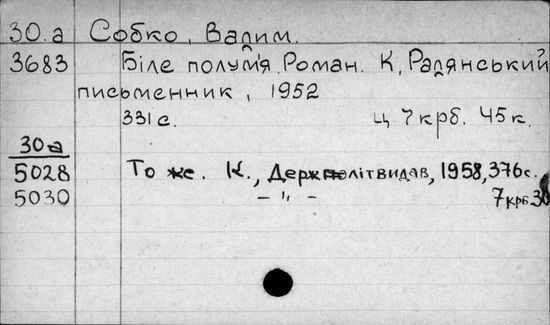 30.а Собко, Вадим.
3683 Біле полум'я. Роман. К, Радянський
письменник, 1952
331 с. ц 7 крб. 45 к.
30а
5028 То же. К., Держполітвидав, 1958, 376 с.
5030 – " – 7 крб 30